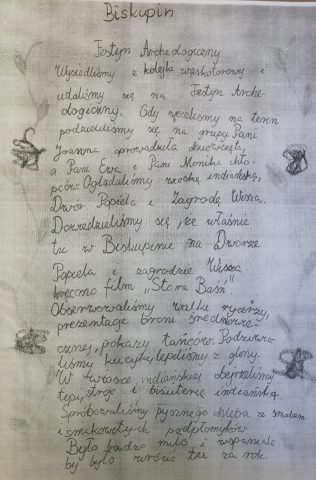 Biskupin
Festyn Archeologiczny
Wysiedliśmy z kolejki wąskotorowej i
udaliśmy się na Festyn Arche-
ologiczny. Gdy weszliśmy na teren
podzieliliśmy się na grupy. Pani
Joanna oprowadziła dziewczęta,
a Pani Ewa i Pani Monika chło-
pców. Oglądaliśmy wioskę indiańską,
Dwór Popiela i Zagrodę Wisza.
Dowiedzieliśmy się, że właśnie
tu w Biskupinie na Dworze
Popiela i zagrodzie Wisza
kręcono film "Stara Baśń"
Obserwowaliśmy walkę rycerzy,
prezentacje broni średniowie-
cznej, pokazy tańców. Podziwia-
liśmy kucyki, lepiliśmy z gliny.
W wiosce indiańskiej obejrzeliśmy
tepu, stroje i biżuterię indiańską.
Spróbowaliśmy pysznego chleba ze smalcem
i smakowitych podpłomyków.
Było bardzo miło i wspaniale
by było wrócić tu za rok.